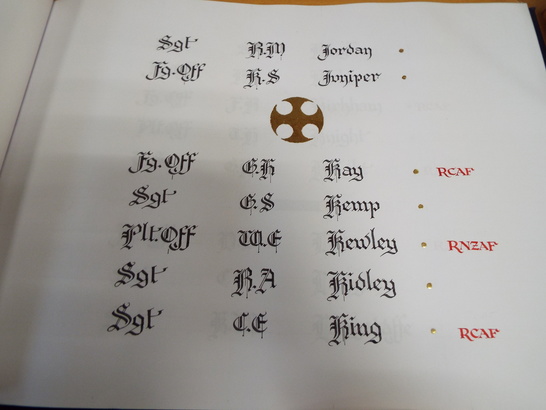 Sgt R.W Jordan
Fg.Off K.S Juniper
Fg.Off G.H Kay RCAF
Sgt G.S Kemp
Plt.Off W.E Kewley RNZAF
Sgt R.A Kidley
Sgt C.E King RCAF